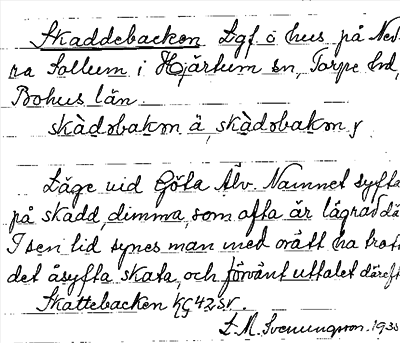 Skaddebacken Lgf o hus på Ned-
ra Sollum i Hjärtum sn, Torpe hd,
Bohus län.
skàdəbakən ä, skàdəbakən y
Läge vid Göta Älv. Namnet syfta
på skadd, dimma, som ofta är lägrad dä
I sen tid synes man med orätt ha trott
det åsyfta skata, och förvänt uttalet däreft
Skattebacken KG42,SV.
1935